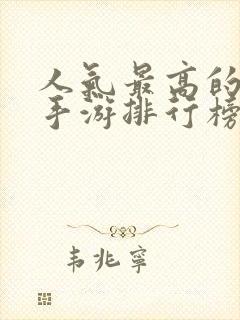 人氣最高的
手游排行榜
韦兆寧